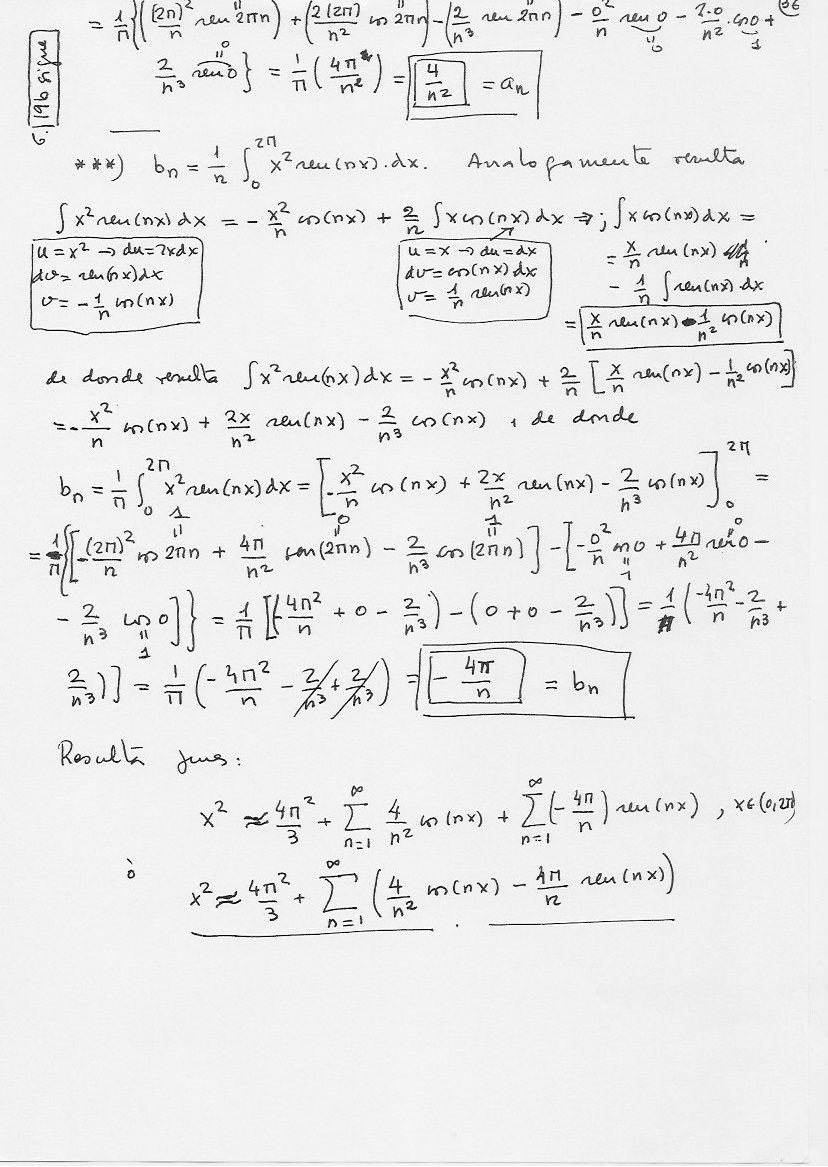 = 1/π {((2π)²/n sen 2πn) + (2(2π)/n² cos 2πn) - (2/n³ sen 2πn) - 0²/n sen 0 - 2·0/n² · cos 0 +
2/n³ sen 0} = 1/π (4π/n²) = 4/n² = aₙ
6.19b sigue
***) bₙ = 1/π ∫₀^2π x² sen(nx)·dx. Analogamente resulta
∫x² sen(nx) dx = - x²/n cos(nx) + 2/n ∫x cos(nx) dx ⇒; ∫x cos(nx) dx =
u = x² → du = 2xdx
dv = sen(nx)dx
v = - 1/n cos(nx)
u = x → du = dx
dv = cos(nx)dx
v = 1/n sen(nx)
= x/n sen(nx)
- 1/n ∫sen(nx) dx
= x/n sen(nx) - 1/n² cos(nx)
de donde resulta ∫x² sen(nx) dx = - x²/n cos(nx) + 2/n [x/n sen(nx) - 1/n² cos(nx)]
= - x²/n cos(nx) + 2x/n² sen(nx) - 2/n³ cos(nx), de donde
bₙ = 1/π ∫₀^2π x² sen(nx) dx = [- x²/n cos(nx) + 2x/n² sen(nx) - 2/n³ cos(nx)]₀^2π =
= 1/π {[-(2π)²/n cos 2πn + 4π/n² sen(2πn) - 2/n³ cos(2πn)] - [- 0²/n cos 0 + 4π/n² sen 0 -
- 2/n³ cos 0]} = 1/π [(-4π²/n + 0 - 2/n³) - (0 + 0 - 2/n³)] = 1/π (-4π²/n - 2/n³ +
2/n³)] = 1/π (- 4π²/n - 2/n³ + 2/n³) = - 4π/n = bₙ
Resulta pues:
x² ≈ 4π²/3 + ∑ₙ₌₁^∞ 4/n² cos(nx) + ∑ₙ₌₁^∞ (- 4π/n) sen(nx), x∈(0,2π)
ò
x² ≈ 4π²/3 + ∑ₙ₌₁^∞ (4/n² cos(nx) - 4π/n sen(nx))